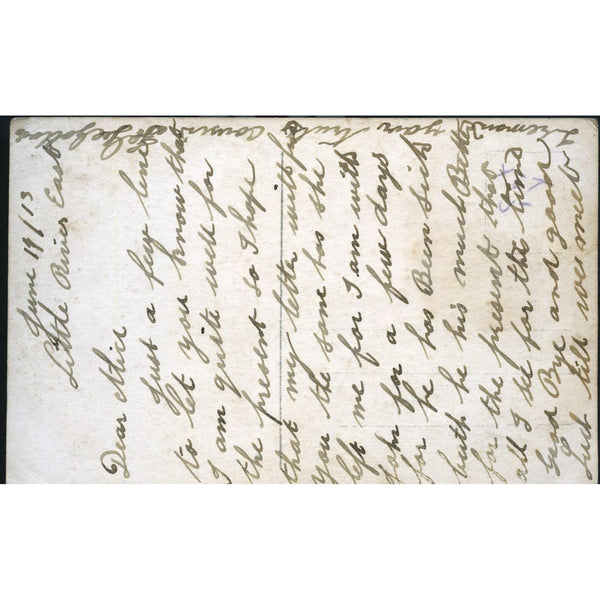 June 19/13
Little River East
Dear Alice
Just a few lines
to let you know that
I am quite well for
the present so I hope
that my letter will find
you the same has she
left me for I am with
John for a few days
for he has Been sick
buth he his much Better
for the present that
all I se for this time
Good Bye and good
Luck till wee meeth
I remand your truly
cousin